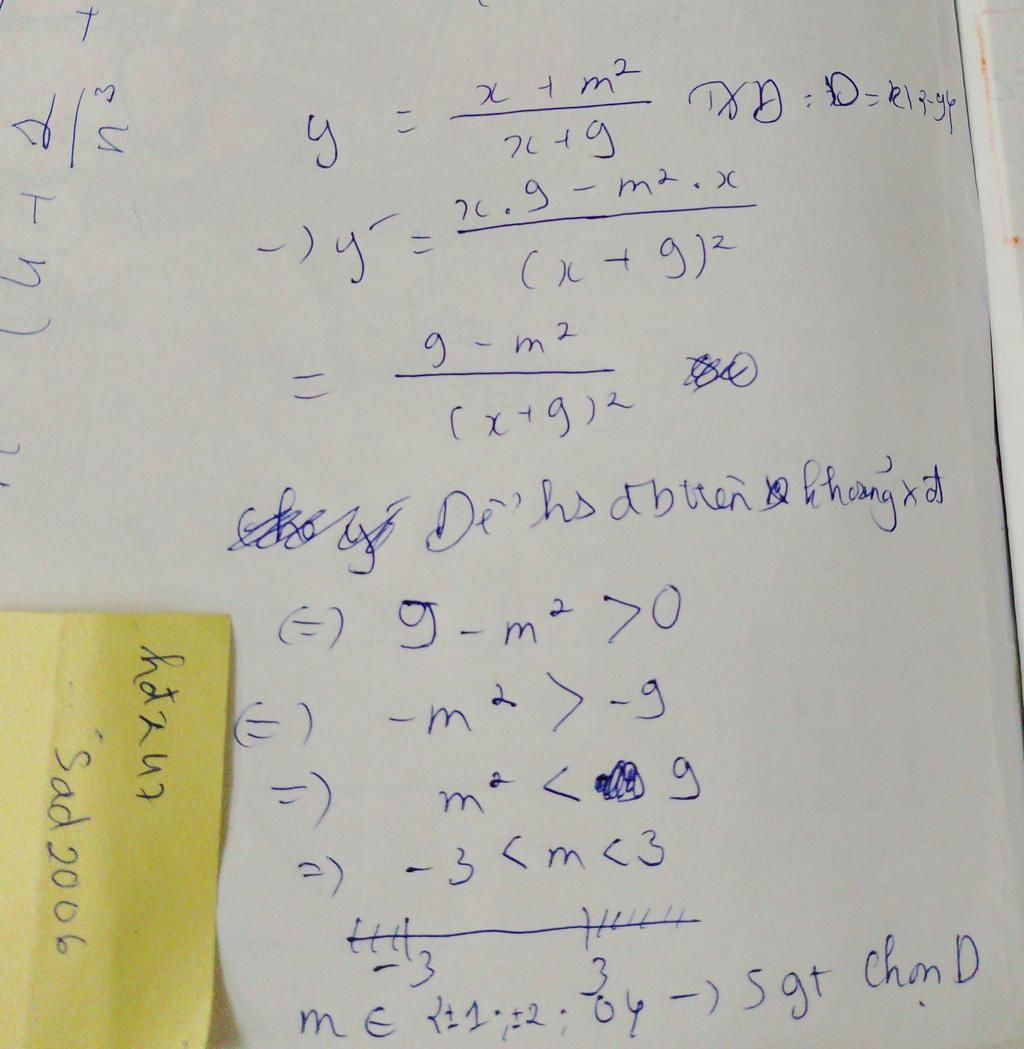 y = (x + m²)/(x + 9) TXD : D = R\{-9}
-) y' = (x . 9 - m² . x)/(x + 9)²
= (9 - m²)/(x + 9)²
Để hs đb trên khoảng xđ
(=) 9 - m² > 0
(=) -m² > -9
=) m² < 9
=) -3 < m < 3
-3 3
m ∈ {±1 ; ±2 ; 0} -) 5 gt chọn D
hđz47
Sad2006